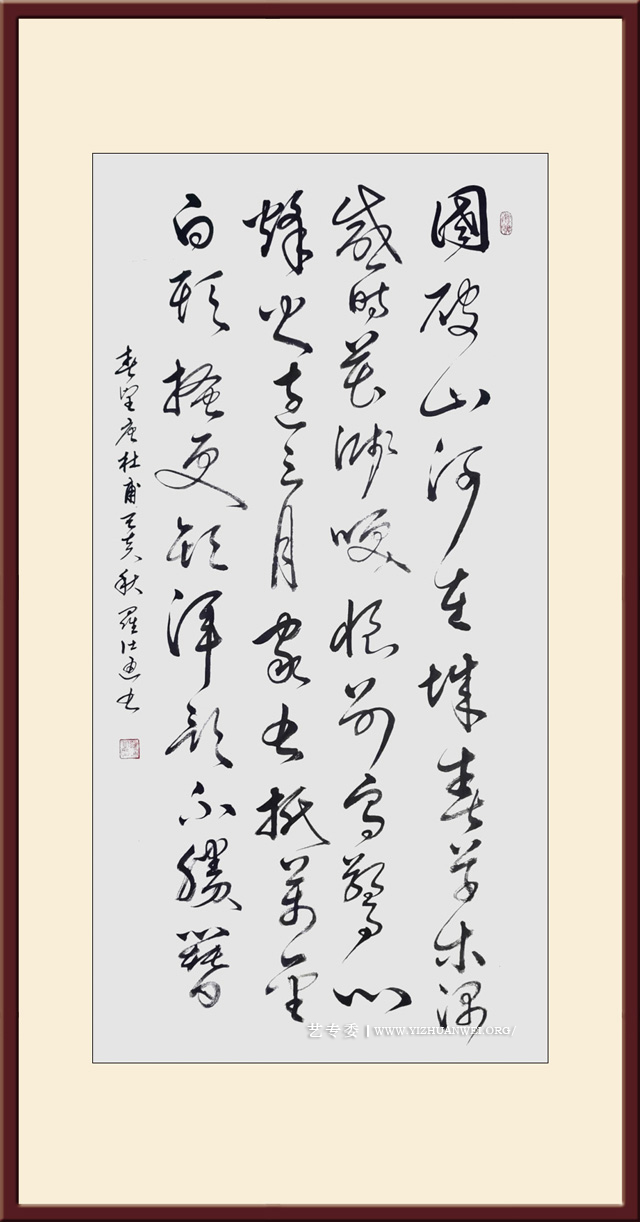 國破山河在城春草木深
感時花濺淚恨別鳥驚心
烽火連三月家書抵萬金
白頭搔更短渾欲不勝簪
春望唐杜甫秋羅仕書
艺专委 | WWW.YIZHUANWEI.ORG/